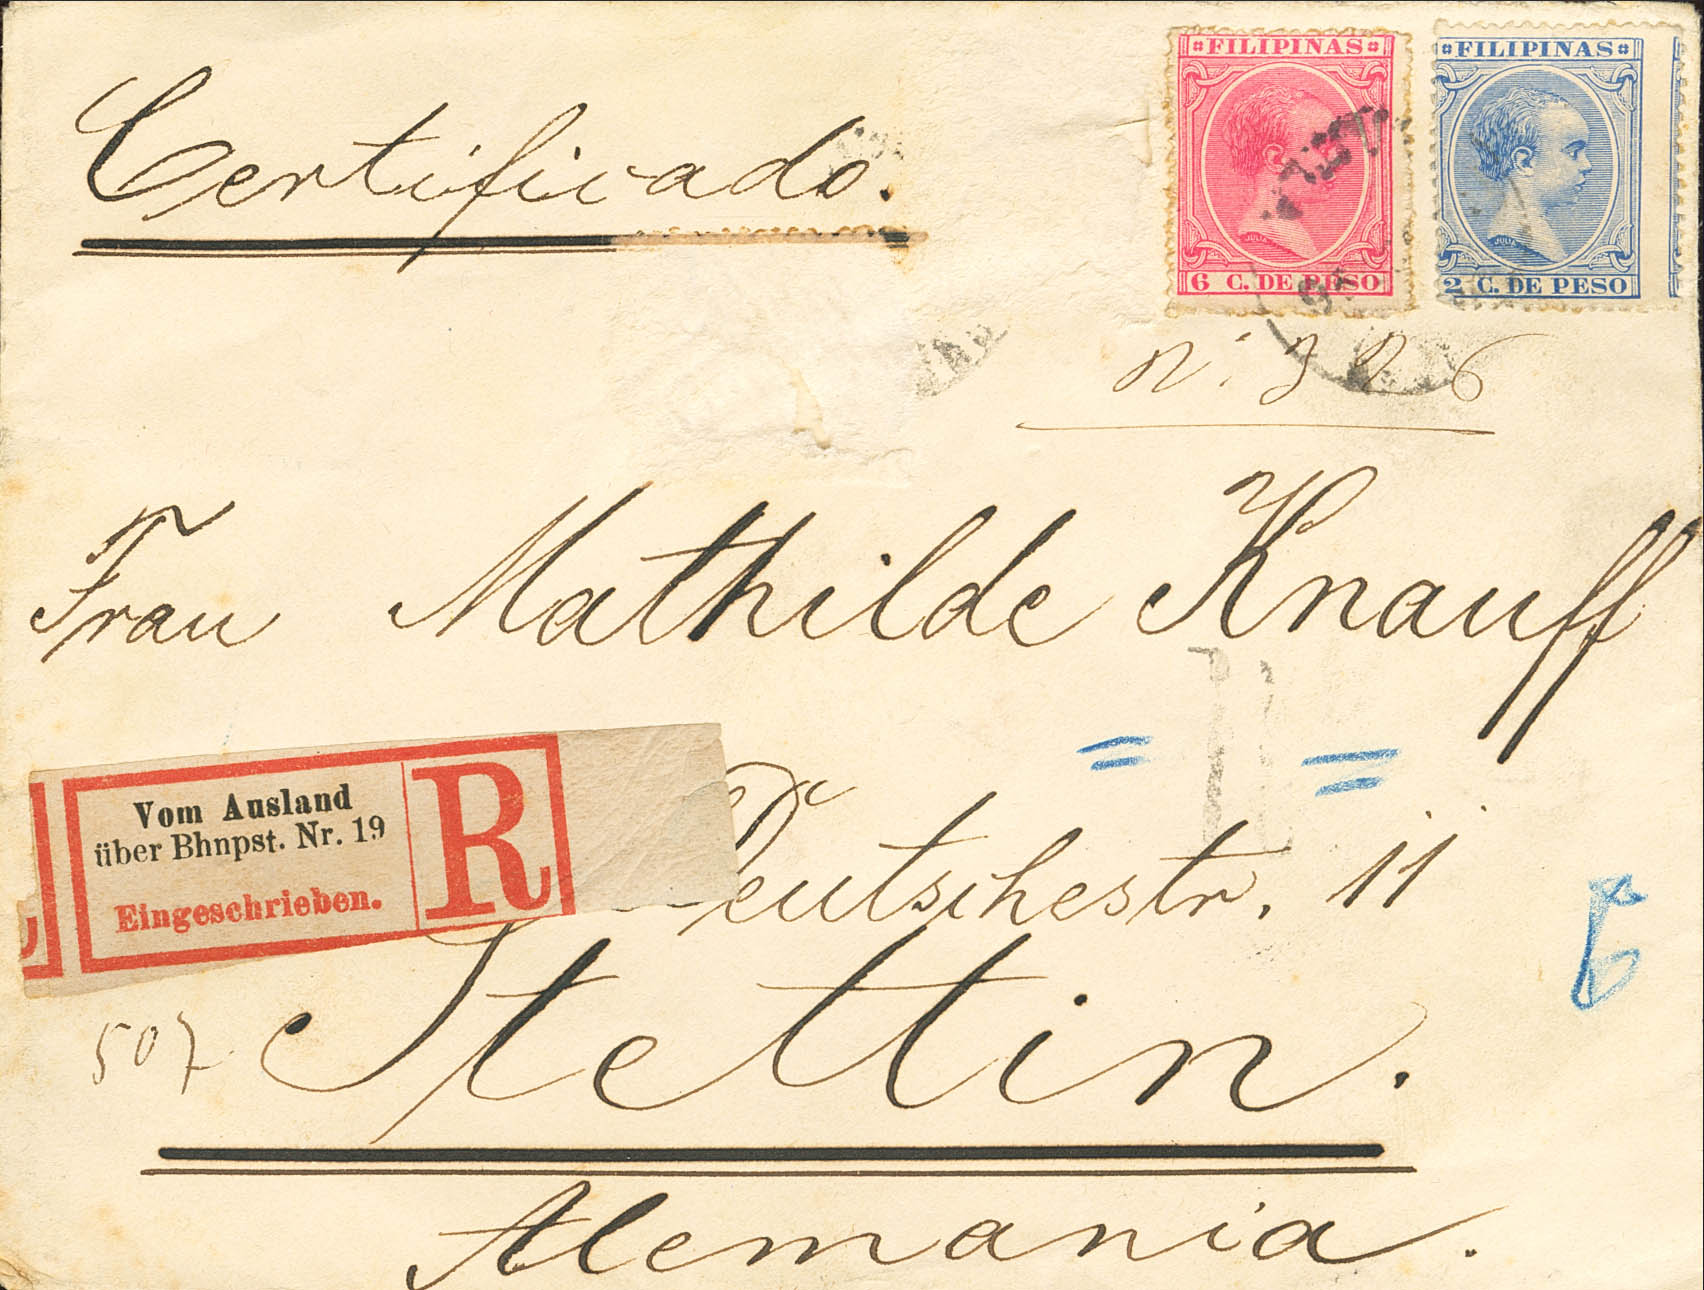 FILIPINAS
6 C. DE PESO
FILIPINAS
2 C. DE PESO
Certificado.
Nº 326
Frau Mathilde Knauff
Vom Ausland
über Bhnpst. Nr. 19
Eingeschrieben.
R
Deutschestr. 11
507
Stettin.
Alemania.